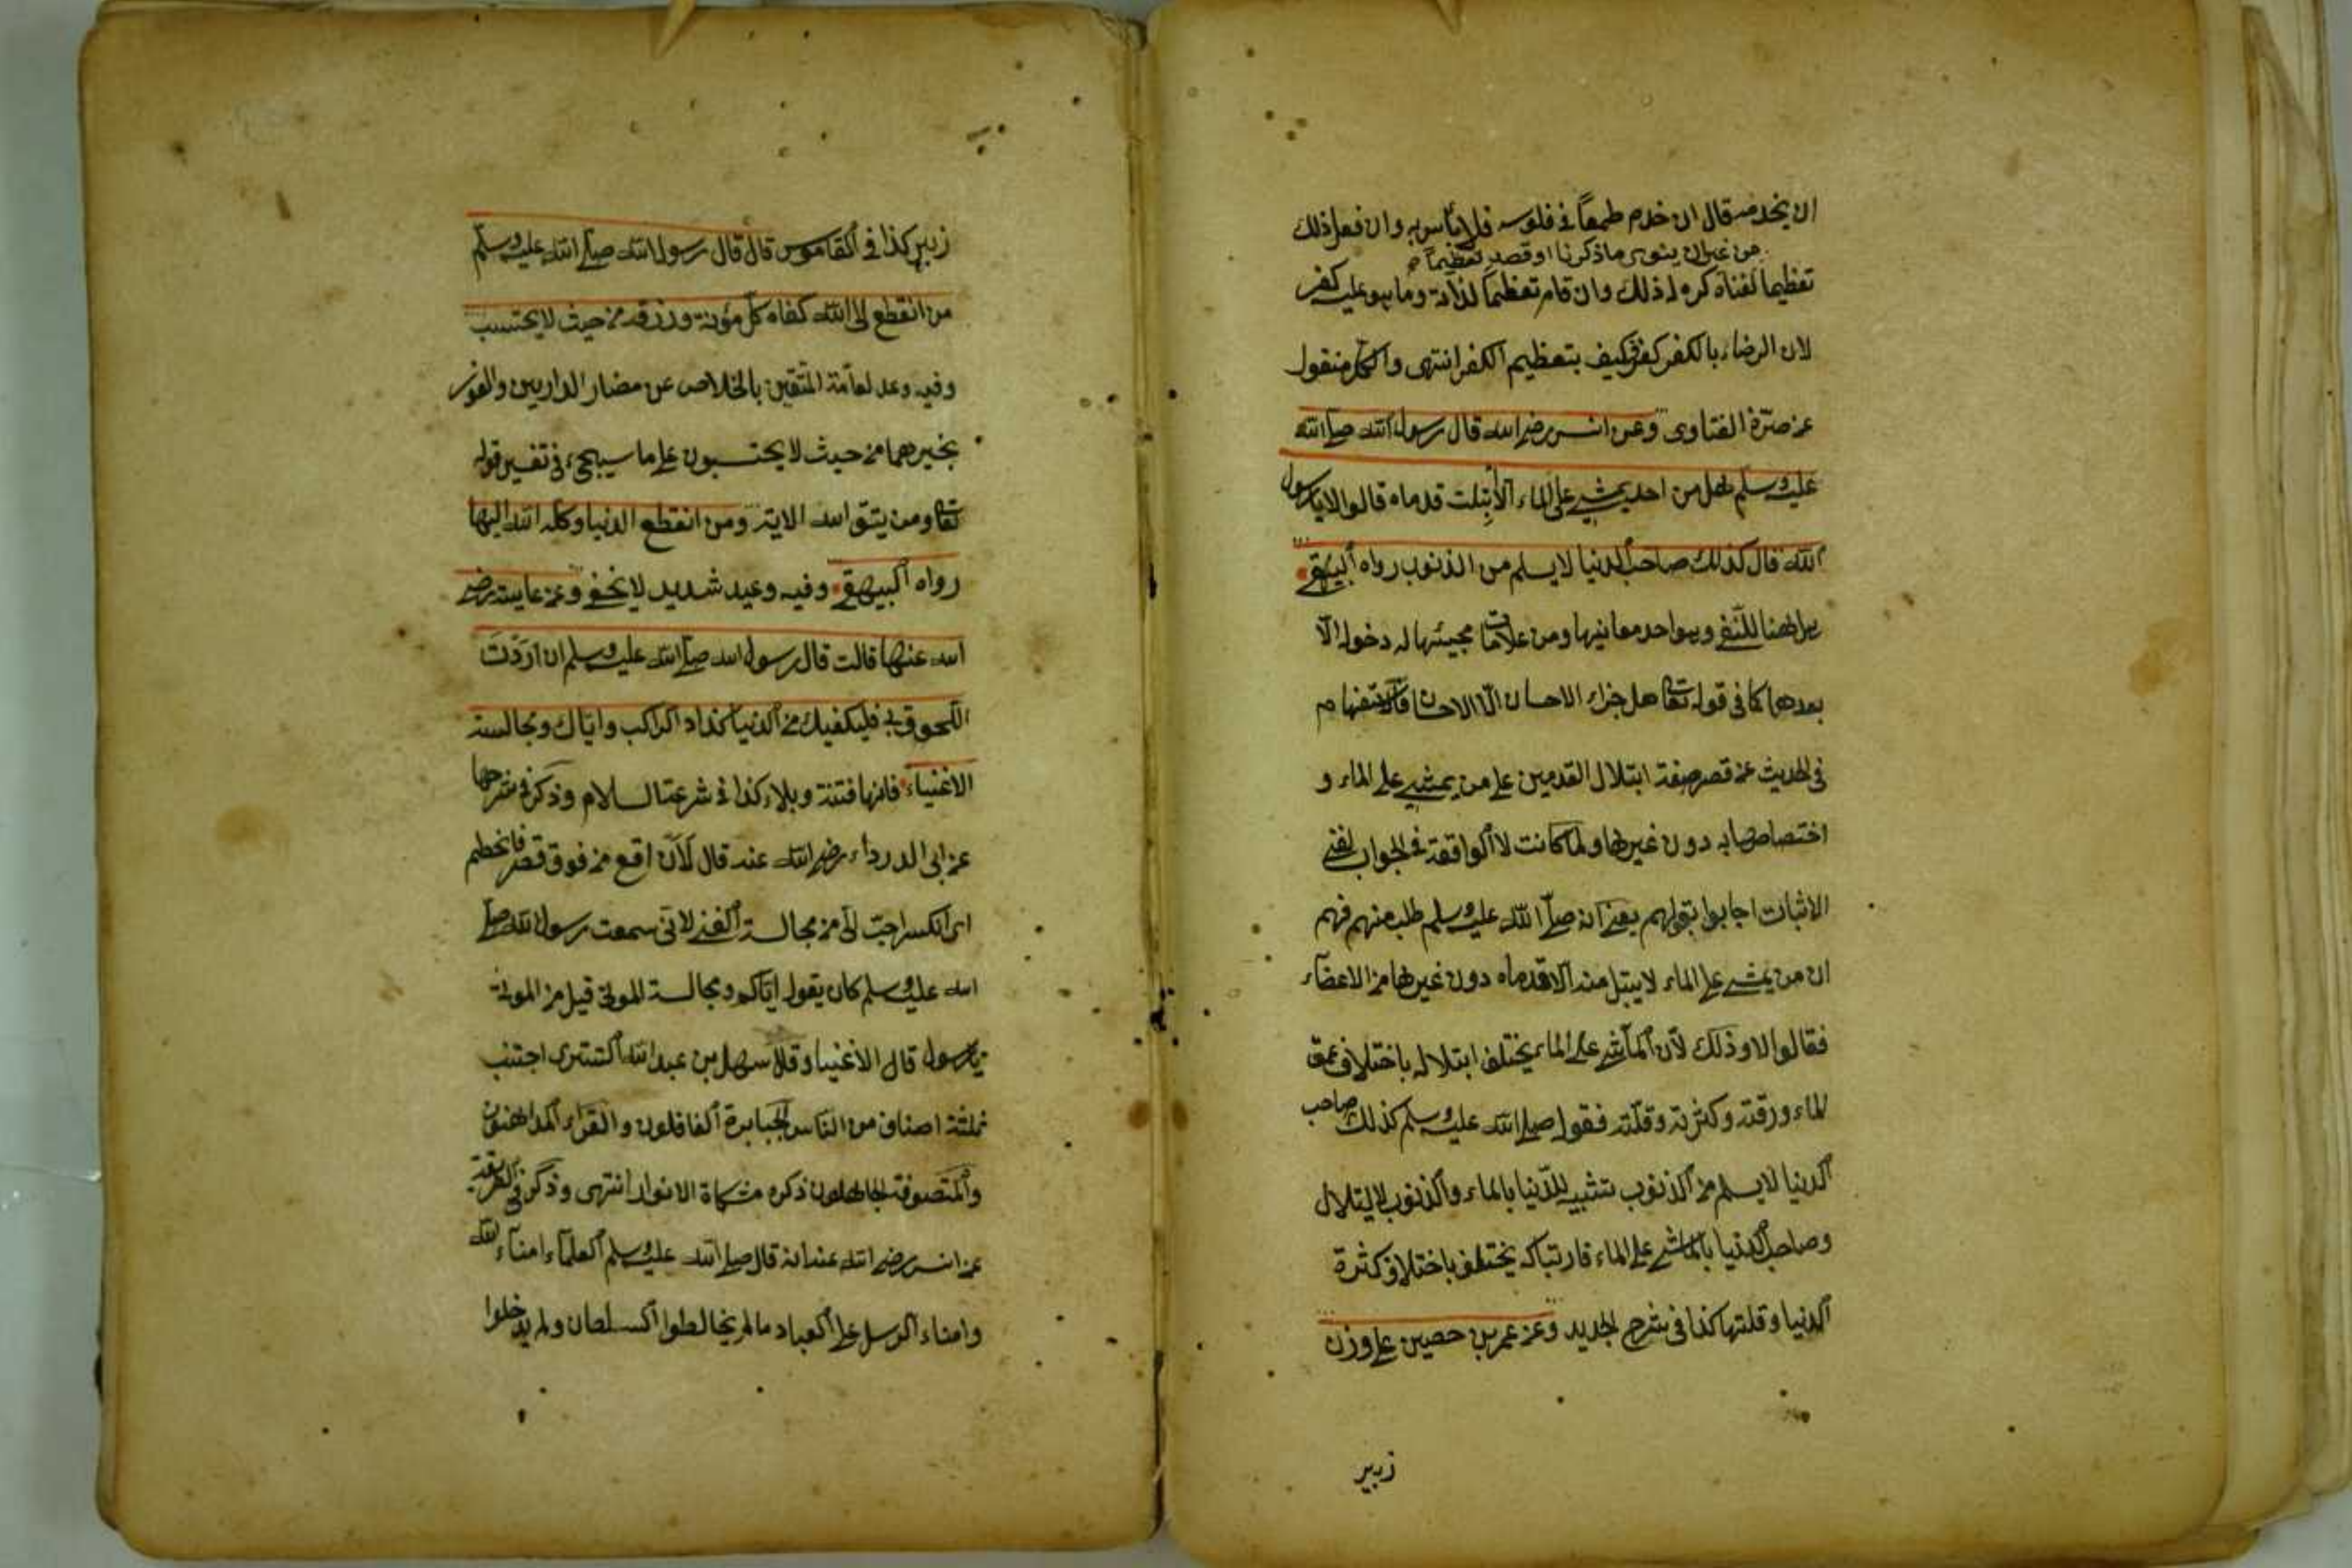 ان يخدمه قال ان خدم طمعاً في فلوسه فلا بأس به وان فعل ذلك
من غير ان ينوى ما ذكرنا او قصد تعظيما
تعظيما لغناه كره له ذلك وان قام تعظيما لذاته وما هو عليه كفر
لان الرضاء بالكفر كفر فكيف بتعظيم الكفر انتهى والكل منقول
عن صرة الفتاوى وعن انس رضى الله قال رسول الله صلى الله
عليه وسلم هل من احد يمشى على الماء الا ابتلت قدماه قالوا لا يا رسول
الله قال كذلك صاحب الدنيا لا يسلم من الذنوب رواه البيهقى
هل ههنا للنفى وهو احد معانيها ومن علامات مجيئها له دخول الّا
بعدها كما فى قوله تعالى هل جزاء الاحسان الّا الاحسان
فى الحديث عن قصر صفة ابتلال القدمين على من يمشى على الماء و
اختصاصها به دون غيرها ولما كانت لا الواقعة فى الجواب لنفى
الاثبات اجابوا بقولهم يعنى انه صلى الله عليه وسلم طلب منهم فهم
ان من يمشى على الماء لا يبتل منه الا قدماه دون غيرها من الاعضاء
فقالوا لا وذلك لأن الماشى على الماء يختلف ابتلاله باختلاف عمق
الماء ورقته وكثرته وقلته فقول صلى الله عليه وسلم كذلك صاحب
الدنيا لا يسلم من الذنوب تشبيه للدنيا بالماء والذنوب لابتلال
وصاحب الدنيا بالماشى على الماء فارتباكه يختلف باختلاف كثرة
الدنيا وقلتها كذا فى شرح الجديد وعن عمر بن حصين على وزن
زبير
زبير كذا فى القاموس قال قال رسول الله صلى الله عليه وسلم
من انقطع الى الله كفاه كل مؤنة ورزقه من حيث لا يحتسب
وفيه وعد لعامة المتقين بالخلاص عن مضار الدارين والفوز
بخيرهما من حيث لا يحتسبون على ما سيجئ فى تفسير قوله
تعالى ومن يتق الله الاية ومن انقطع الدنيا وكله الله اليها
رواه البيهقى وفيه وعيد شديد لا يخفى وعن عايشة رضى
الله عنها قالت قال رسول الله صلى الله عليه وسلم ان اردت
اللحوق بى فليكفيك من الدنيا كزاد الراكب واياك ومجالسة
الاغنياء فانها فتنة وبلاء كذا فى شرعة السلام وذكر فى شرحها
عن ابى الدرداء رضى الله عنه قال لأن اقع من فوق قصر فانحطم
اى انكسر احبّ الىّ من مجالسة الغنى لانى سمعت رسول الله صلى
الله عليه وسلم كان يقول اياكم ومجالسة الموتى قيل من الموتى
يا رسول قال الاغنياء وقال سهل بن عبد الله التسترى اجتنب
ثلثة اصناف من الناس الجبابرة الغافلون والقراء المداهنين
والمتصوفة الجاهلون ذكره مشكاة الانوار انتهى وذكر فى الطريقة
عن انس رضى الله عنه انه قال صلى الله عليه وسلم العلماء امناء الله
وامناء الرسل على العباد ما لم يخالطوا السلطان ولم يدخلوا